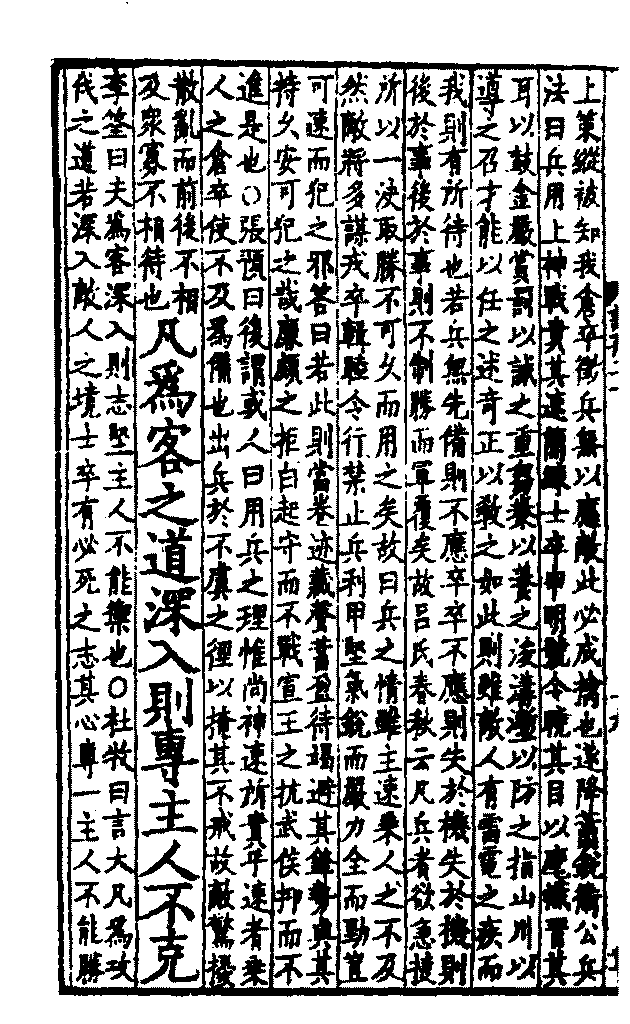 上策縱被知我倉卒徵兵無以應敵此必成擒也遂降蕭銑衛公兵
法曰兵用上神戰貴其速簡練士卒申明號令曉其目以麾幟習其
耳以鼓金嚴賞罰以誡之重芻豢以養之浚溝塹以防之指山川以
導之召才能以任之述奇正以教之如此則雖敵人有雷電之疾而
我則有所待也若兵無先備則不應卒卒不應則失於機失於機則
後於事後於事則不制勝而軍覆矣故吕氏春秋云凡兵者欲急捷
所以一決取勝不可久而用之矣故曰兵之情雖主速乘人之不及
然敵將多謀戎卒輯睦令行禁止兵利甲堅氣銳而嚴力全而勁豈
可速而犯之邪答曰若此則當卷迹藏聲蓄盈待竭避其鋒勢與其
持久安可犯之哉廉頗之拒白起守而不戰宣王之抗武侯抑而不
進是也○張預曰後謂或人曰用兵之理惟尚神速所貴乎速者乘
人之倉卒使不及爲備也出兵於不虞之徑以掩其不戒故敵驚擾
散亂而前後不相
及衆寡不相待也
凡爲客之道深入則專主人不克
李筌曰夫爲客深入則志堅主人不能禦也○杜牧曰言大凡爲攻
伐之道若深入敵人之境士卒有必死之志其心專一主人不能勝